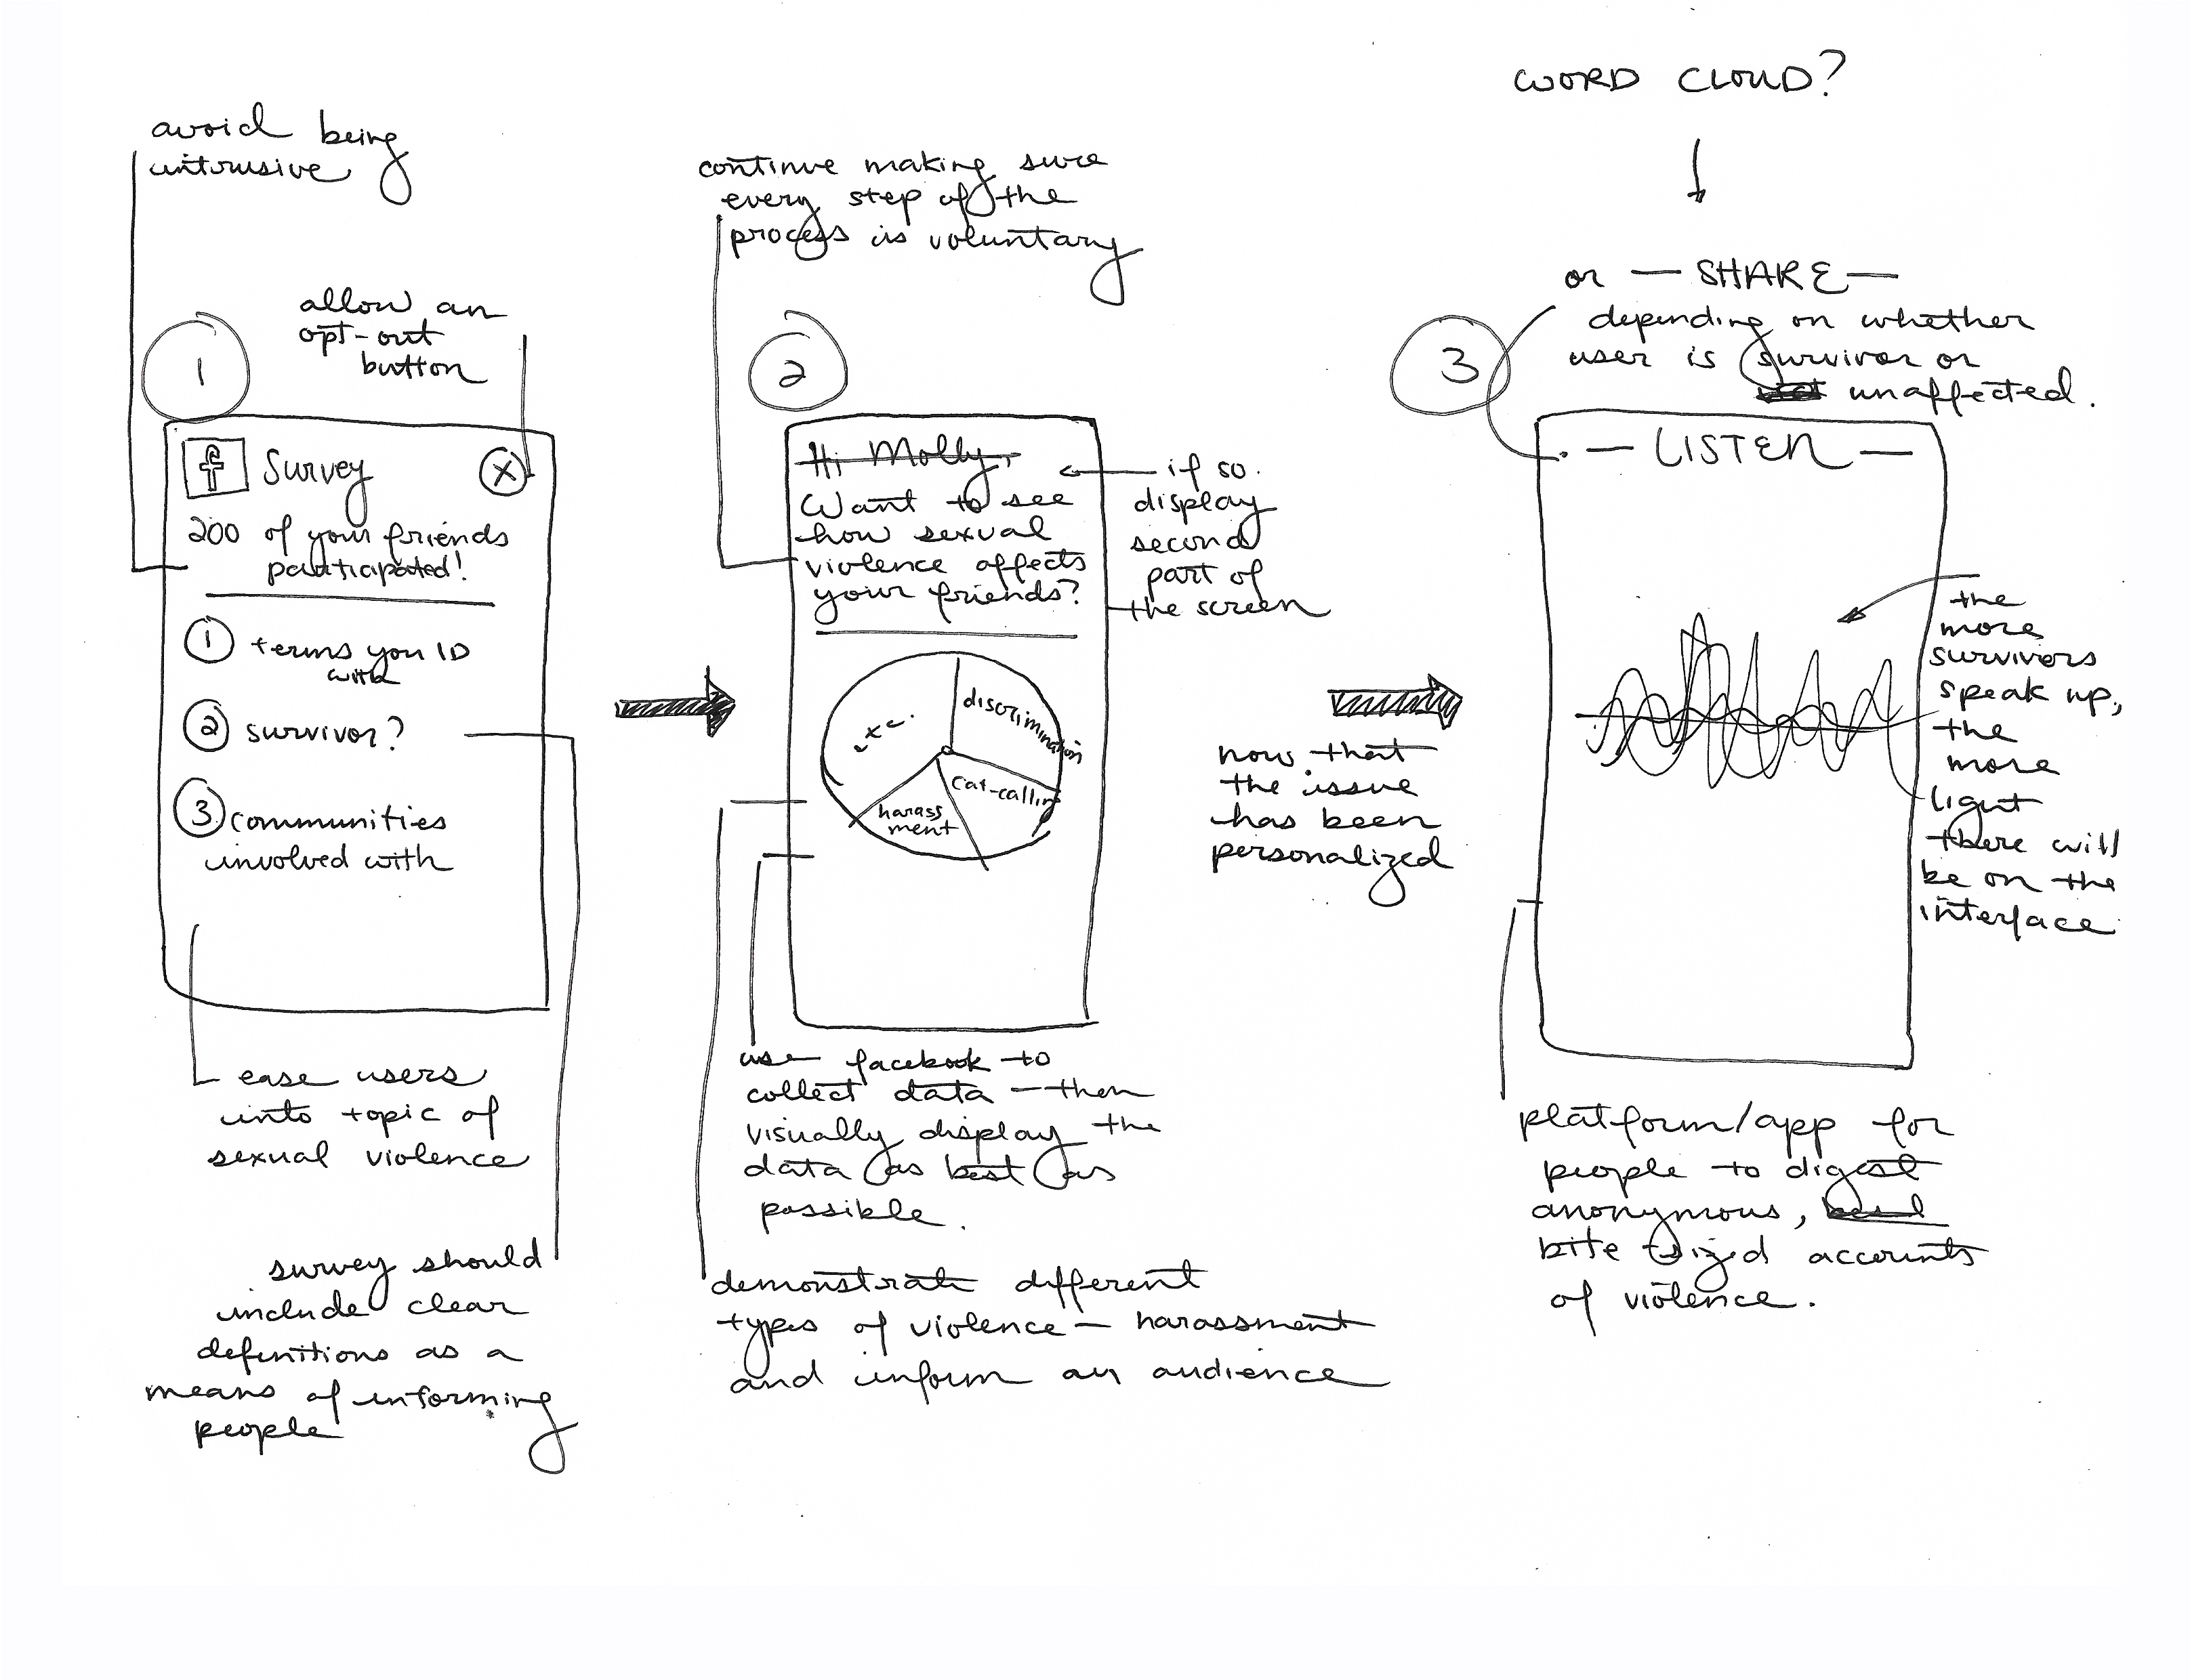 avoid being
intrusive
allow an
opt-out
button
1
f Survey X
200 of your friends
participated!
1 terms you ID
with
2 survivor?
3 communities
involved with
ease users
into topic of
sexual violence
survey should
include clear
definitions as a
means of informing
people
continue making sure
every step of the
process is voluntary
2
Hi Molly,
Want to see
how sexual
violence affects
your friends?
if so
display
second
part of
the screen
discrimination
cat-calling
harass
ment
etc.
use facebook to
collect data — then
visually display the
data as best as
possible.
demonstrate different
types of violence — harassment
and inform an audience
now that
the issue
has been
personalized
WORD CLOUD?
or — SHARE —
depending on whether
user is survivor or
unaffected.
3
— LISTEN —
the
more
survivors
speak up,
the
more
light
there will
be on the
interface
platform/app for
people to digest
anonymous,
bite sized accounts
of violence.